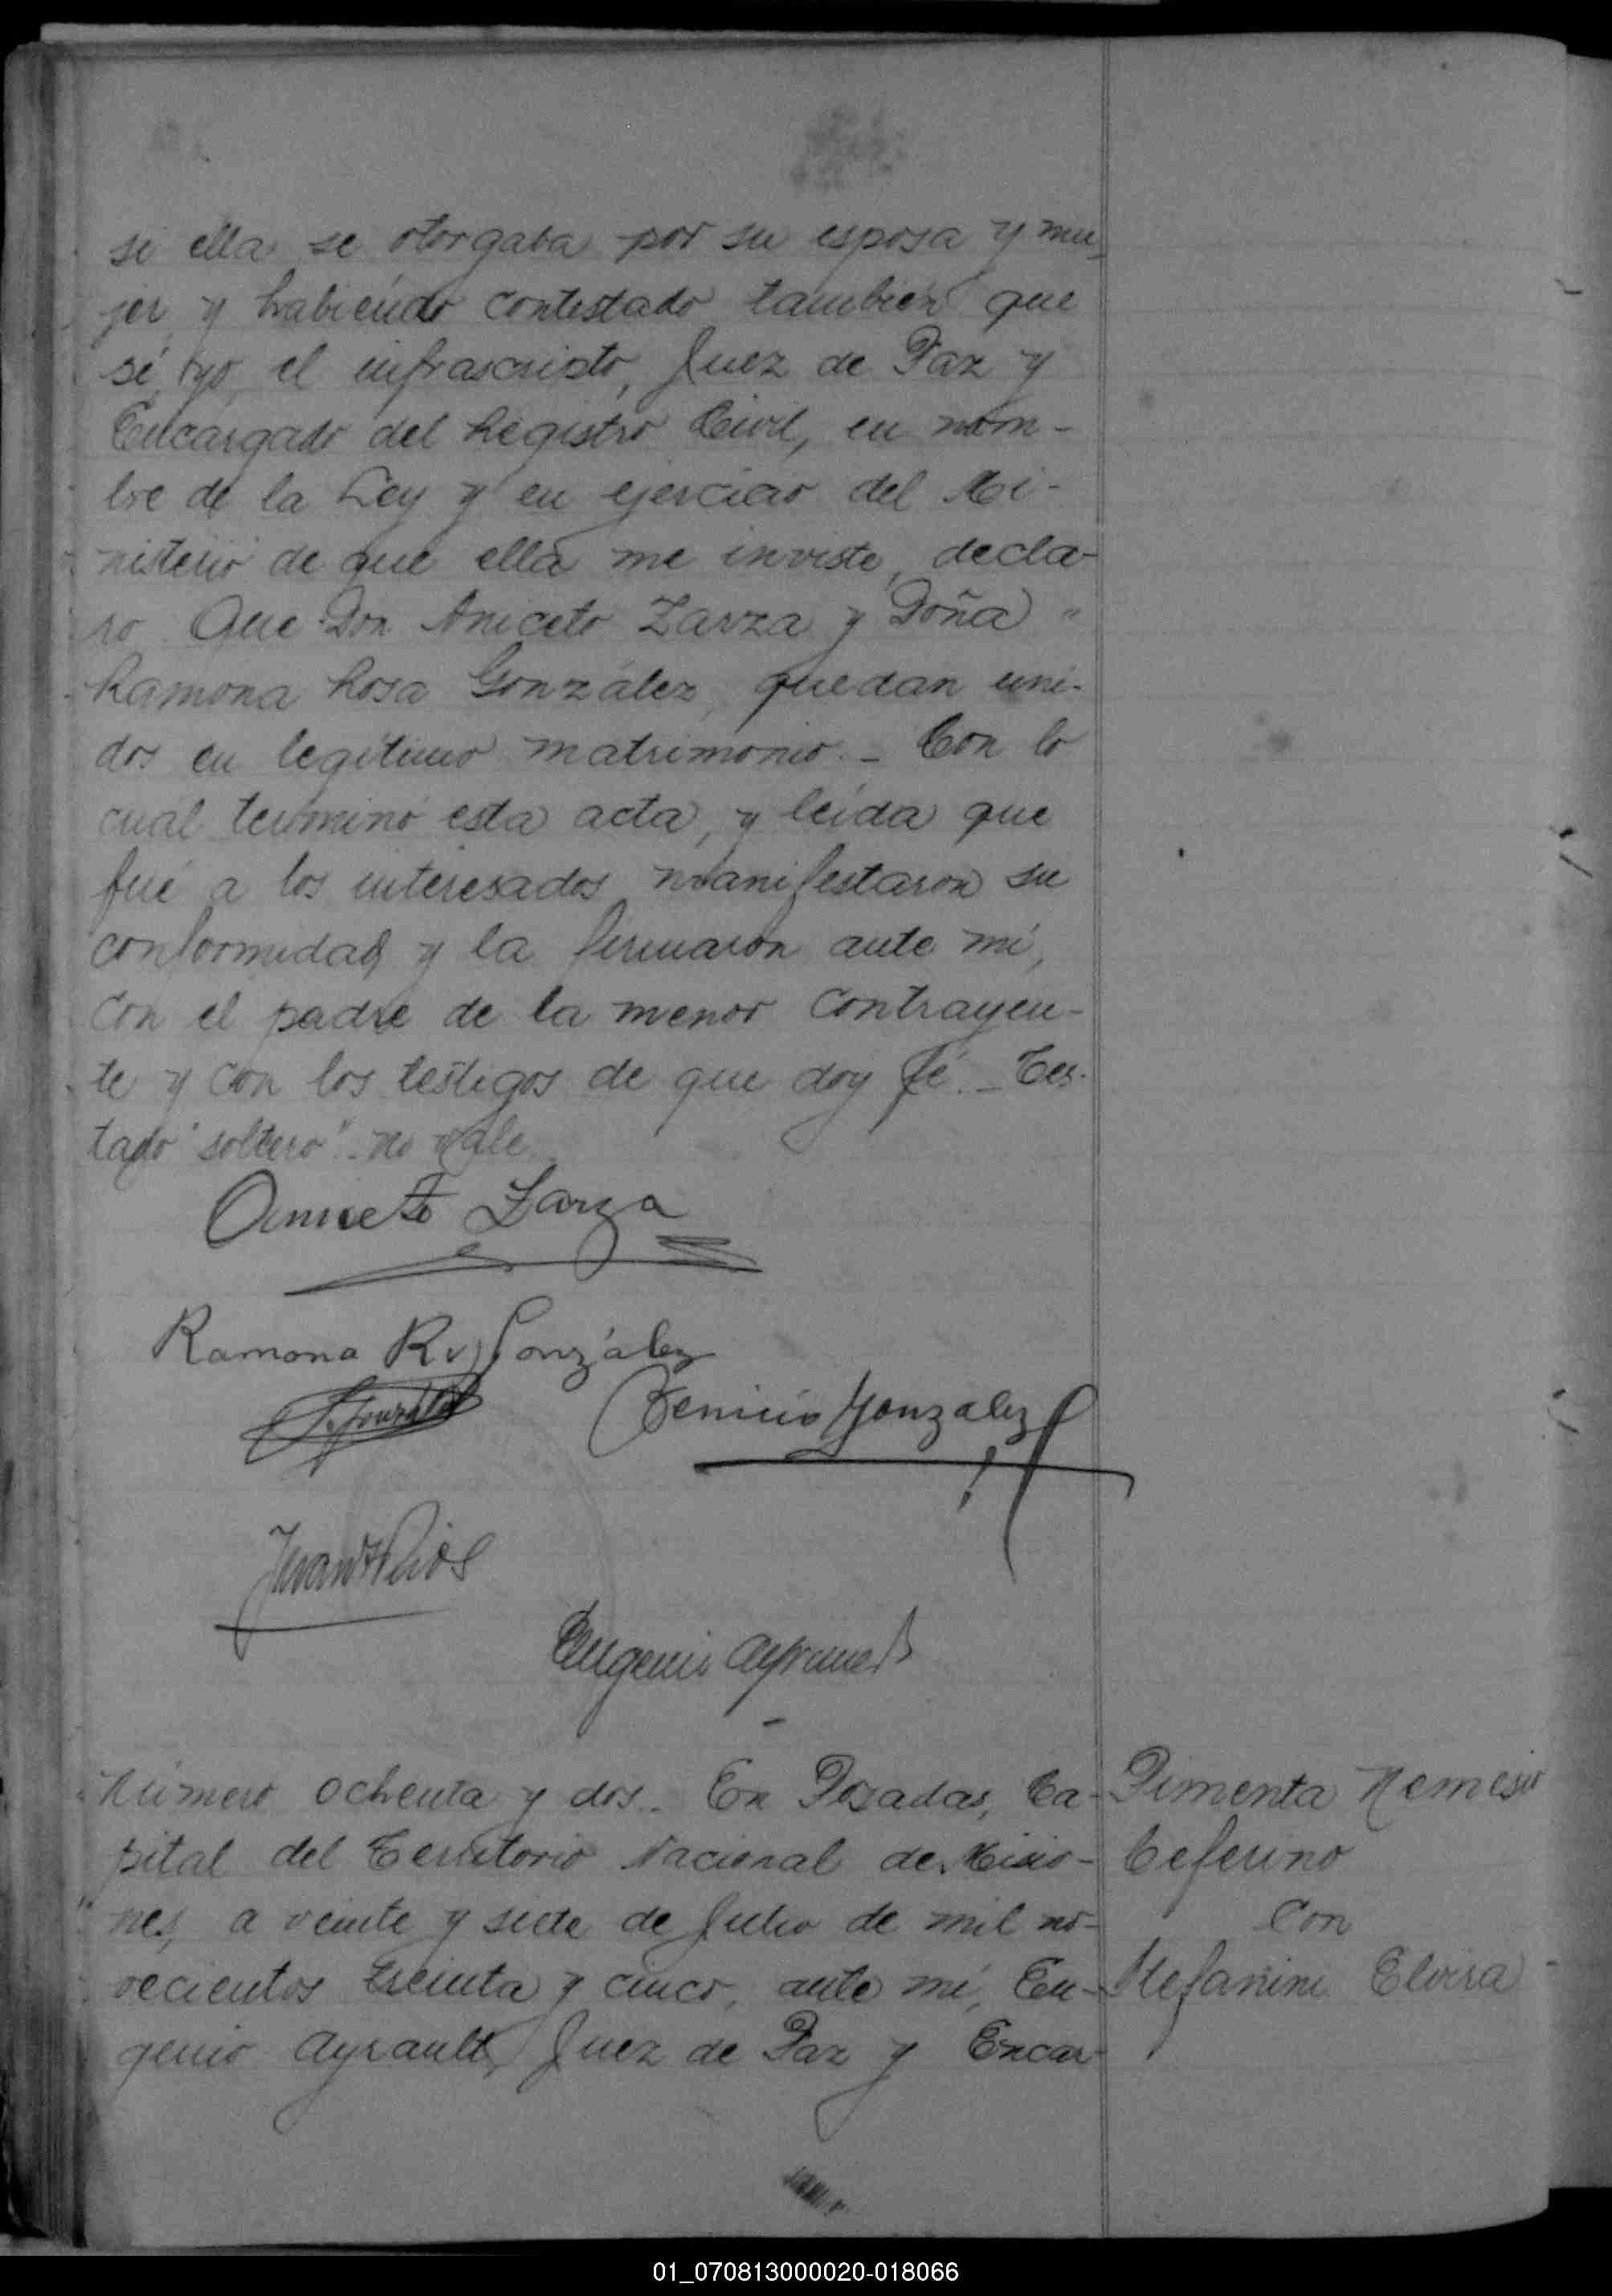 si ella se otorgaba por su esposa y mu-
jer, y habiendo contestado también que
sí, yo, el infrascripto, Juez de Paz y
Encargado del Registro Civil, en nom-
bre de la Ley y en ejercicio del Mi-
nisterio de que ella me inviste, decla-
ro Que Don Aniceto Zarza y Doña
Ramona Rosa González, quedan uni-
dos en legítimo matrimonio.- Con lo
cual terminó esta acta, y leída que
fué a los interesados manifestaron su
conformidad y la firmaron ante mí,
con el padre de la menor contrayen-
te y con los testigos de que doy fé.- Tes-
tado "soltero" no vale
Aniceto Zarza
Ramona R. González
González
González
Juan Rios
Eugenio Ayrault
Número ochenta y dos.. En Posadas, Ca-
pital del Territorio Nacional de Misio-
nes, a veinte y siete de Julio de mil no-
vecientos treinta y cinco, ante mí, Eu-
genio Ayrault, Juez de Paz y Encar-
Pimenta Nemesio
Ceferino
Con
Stefanini Elvira
01_070813000020-018066